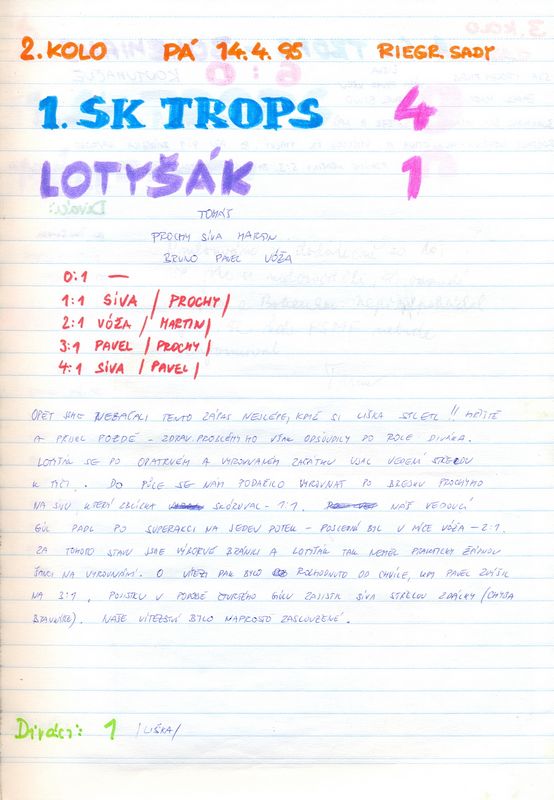 2. KOLO PÁ 14.4.95 RIEGR. SADY
1. SK TROPS 4
LOTYŠÁK 1
TOMÁŠ
PROCHY SÍVA MARTIN
BRUNO PAVEL VÓŽA
0:1 —
1:1 SÍVA /PROCHY/
2:1 VÓŽA /MARTIN/
3:1 PAVEL /PROCHY/
4:1 SÍVA /PAVEL/
OPĚT JSME NEZAČALI TENTO ZÁPAS NEJLÉPE, KDYŽ SI LIŠKA SPLETL !! HŘIŠTĚ
A PŘIJEL POZDĚ - ZDRAV. PROBLÉMY HO VŠAK ODSOUDILY DO ROLE DIVÁKA.
LOTYŠÁK SE PO OPATRNÉM A VYROVNANÉM ZAČÁTKU UJAL VEDENÍ STŘELOU
K TYČI. DO PŮLE SE NÁM PODAŘILO VYROVNAT PO BREJKU PROCHYHO
NA SÍVU, KTERÝ ZBLÍZKA SKÓROVAL - 1:1. NÁŠ VEDOUCÍ
GÓL PADL PO SUPERAKCI NA JEDEN DOTEK - POSLEDNÍ BYL U MÍČE VÓŽA - 2:1.
ZA TOHOTO STAVU JSME VÝBORNĚ BRÁNILI A LOTYŠÁK TAK NEMĚL PRAKTICKY ŽÁDNOU
ŠANCI NA VYROVNÁNÍ. O VÍTĚZI PAK BYLO ROZHODNUTO OD CHVÍLE, KDY PAVEL ZVÝŠIL
NA 3:1, POJISTKU V PODOBĚ ČTVRTÉHO GÓLU ZAJISTIL SÍVA STŘELOU ZDÁLKY (CHYBA
BRANKÁŘE). NAŠE VÍTĚZSTVÍ BYLO NAPROSTO ZASLOUŽENÉ.
Diváci: 1 /LIŠKA/